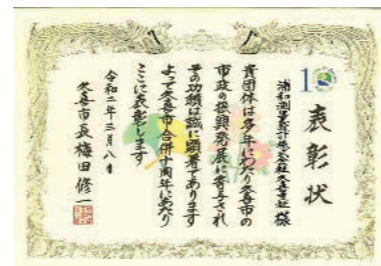 10
表彰状
浦和測量設計株式会社久喜支社 様
貴団体は多年にわたり久喜市の
市政の振興発展に寄与され
その功績は誠に顕著であります
よって久喜市合併十周年にあたり
ここに表彰します
令和二年三月八日
久喜市長 梅田修一